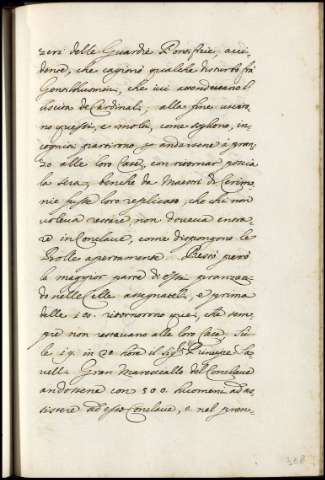 zeri delle Guardie Pontificie, acci-
dente, che cagionò qualche disturbo frà
Gentilhuomini, che ivi attendevano l'
uscita de Cardinali; alla fine usciro-
no questi, e molti, come sogliono, in-
cogniti partirono p andarsene à pran-
zo alle loro Case, con ritornar poscia
la sera, benche da Maestri di Cerimo
nie fusse loro replicato, che chi non
voleva restare non doveva entra
re in Conclave, come dispongono le
Bolle apertamente. Restò però
la maggior parte di essi pranzan
do nelle Celle assegnateli, e prima
delle ritornorno quei, che sem-
pre non restavano alle loro Case. Su
le 19. in 20 hore il Sig.r Prencipe Sa-
velli Gran Marescallo del Conclave
andossene con 500. huomini ad as
sistere ad esso Conclave, e nel pren-
368